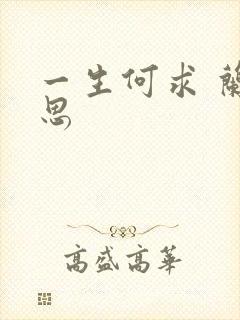 一生何求 蘭
思
高盛高華